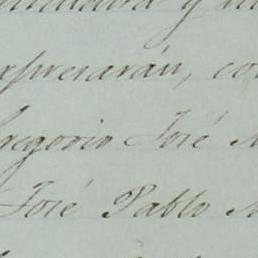 y
espresarán, co
Gregorio José M
José Pablo M